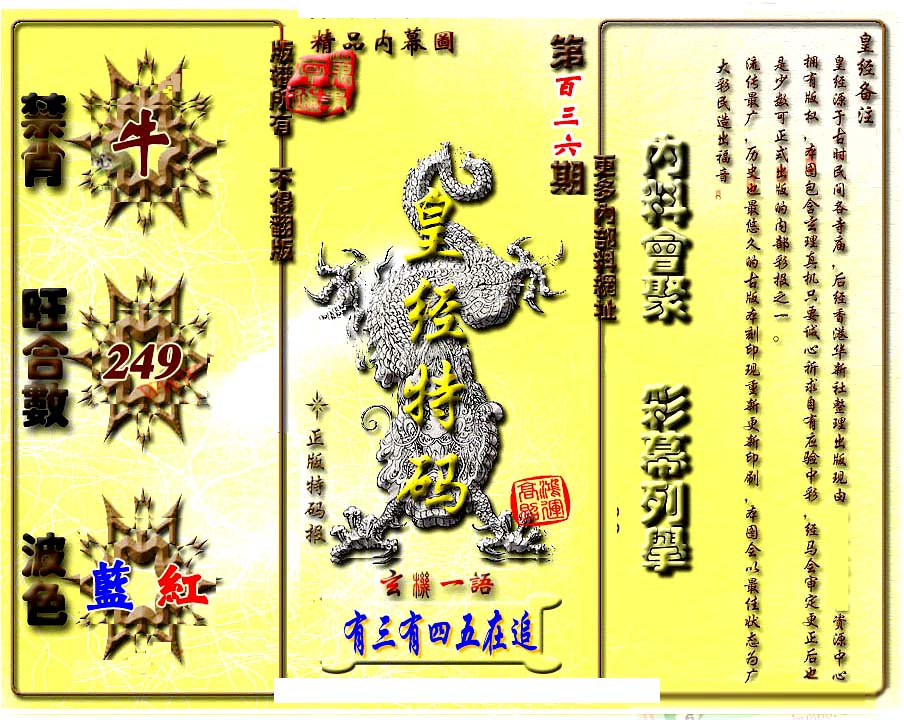 精品内幕圖
版權所有 不得翻版
禁肖
牛
旺合數
249
波色
藍 紅
第百三六期
皇经特码
正版特码报
鴻運高照
玄機一語
有三有四五在追
更多內部料網址
內料會聚 彩幕列擧
皇经备注
皇经源于古时民间各寺庙，后经香港华新社整理出版现由 资源中心
拥有版权，本图包含玄理真机只要诚心祈求自有应验中彩，经马会审定更正后也
是少数可正式出版的内部彩报之一。
流传最广，历史也最悠久的古版本刻印现重新更新印刷，本图会以最佳状态为广
大彩民造出福音